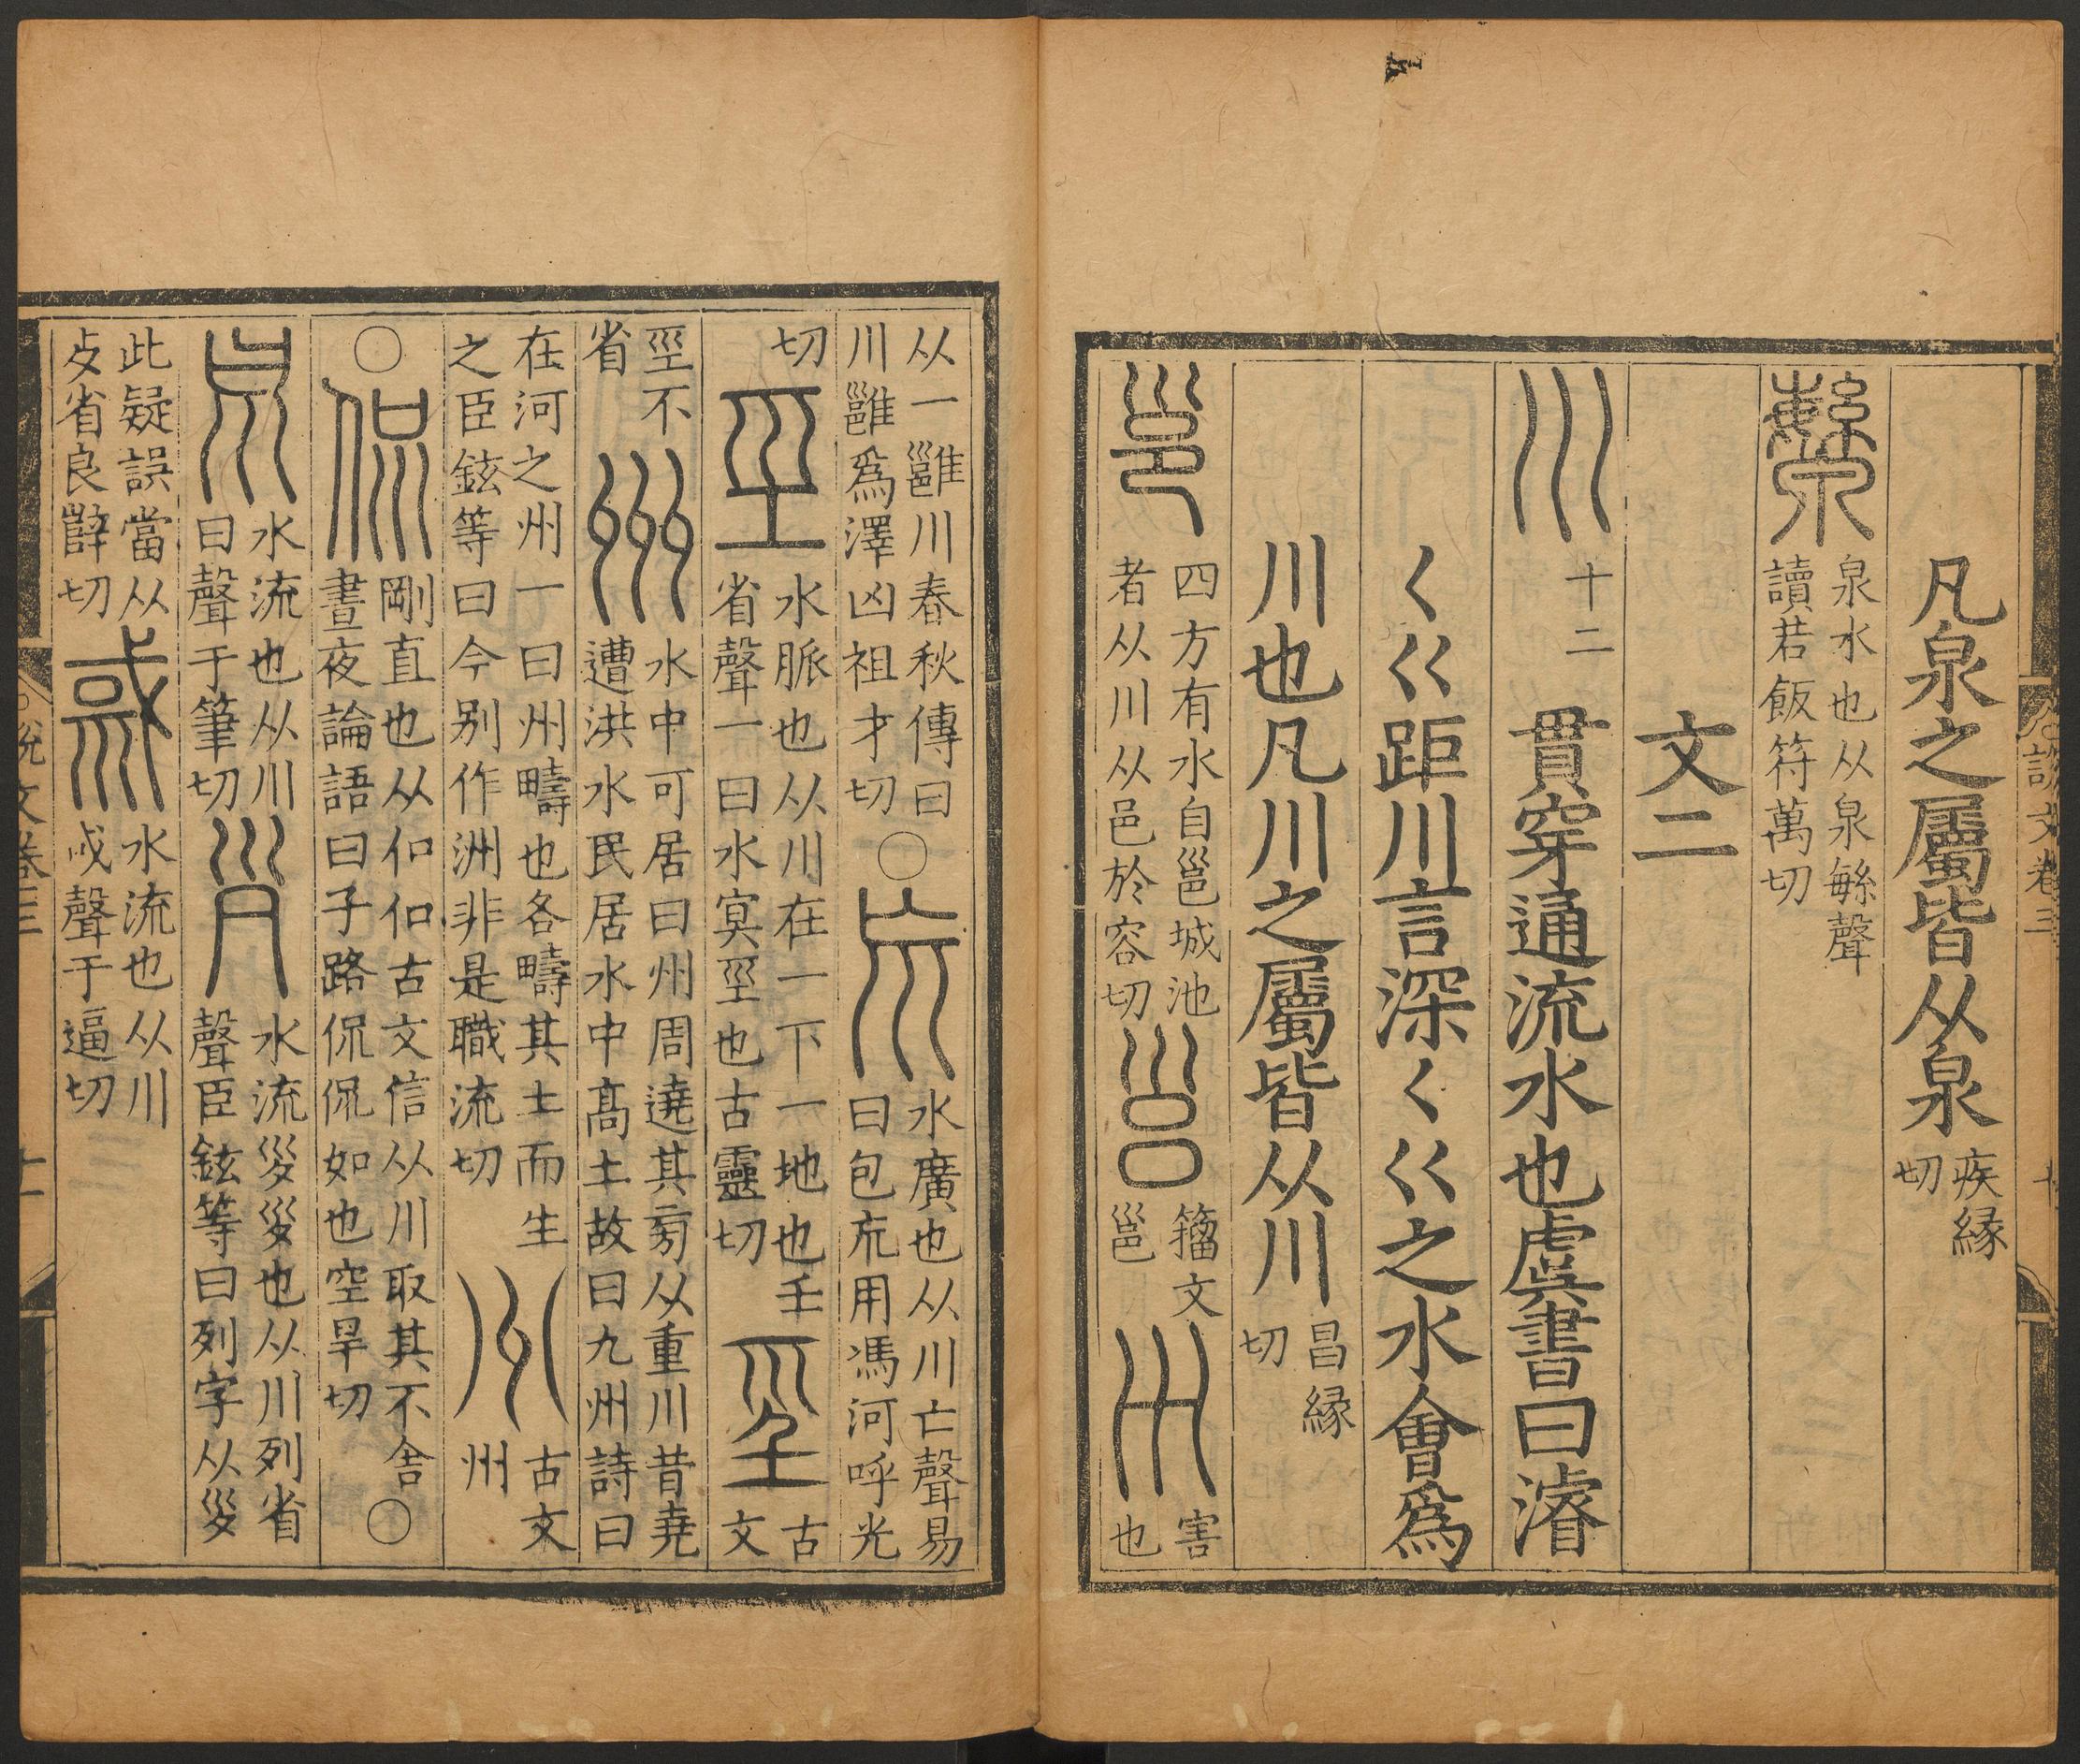 凡泉之屬皆从泉疾緣切
泉水也从泉緐聲讀若飯符萬切
文二
川十二貫穿通流水也虞書曰濬
𡿨巜距川言深𡿨巜之水會爲
川也凡川之屬皆从川昌緣切
邕四方有水自邕城池者从川从邑於容切籀文邕𡿧害也
从一雝川春秋傳曰川雝爲澤凶祖才切〇巟水廣也从川亡聲易曰包巟用馮河呼光
切巠水脈也从川在一下一地也壬省聲一曰水冥巠也古靈切古文
巠不省州水中可居曰州周遶其㫄从重川昔堯遭洪水民居水中高土故曰九州詩曰
在河之州一曰州疇也各疇其土而生之臣鉉等曰今别作洲非是職流切古文州
〇侃剛直也从㐰㐰古文信从川取其不舍晝夜論語曰子路侃侃如也空旱切〇
𡿭水流也从川曰聲于筆切𡿪水流𡿪𡿪也从川列省聲臣鉉等曰列字从𡿪
此疑誤當从歺省良辥切䬑水流也从川或聲于逼切
說文卷三
十一